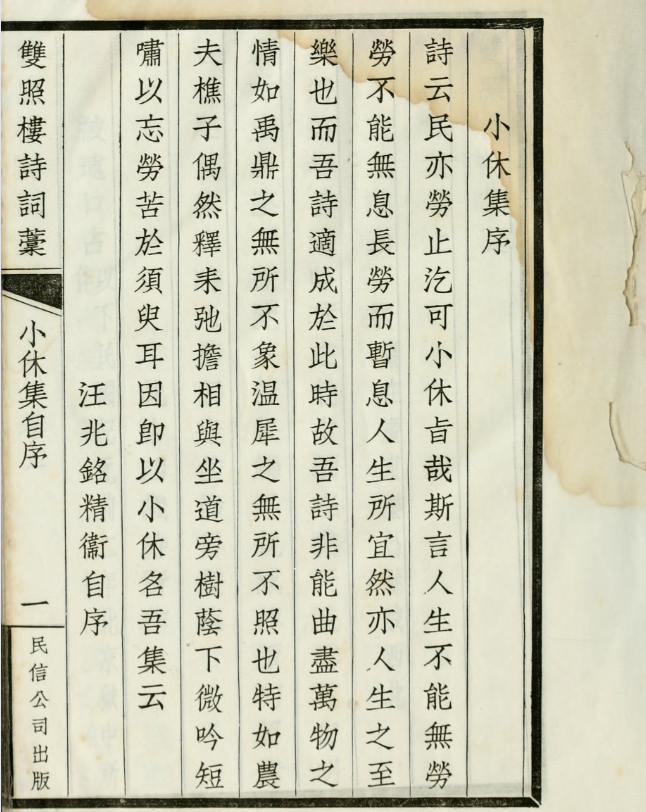 小休集序
詩云民亦勞止汔可小休旨哉斯言人生不能無勞
勞不能無息長勞而暫息人生所宜然亦人生之至
樂也而吾詩適成於此時故吾詩非能曲盡萬物之
情如禹鼎之無所不象温犀之無所不照也特如農
夫樵子偶然釋耒弛擔相與坐道旁樹蔭下微吟短
嘯以忘勞苦於須臾耳因即以小休名吾集云
汪兆銘精衞自序
雙照樓詩詞藳
小休集自序
一
民信公司出版